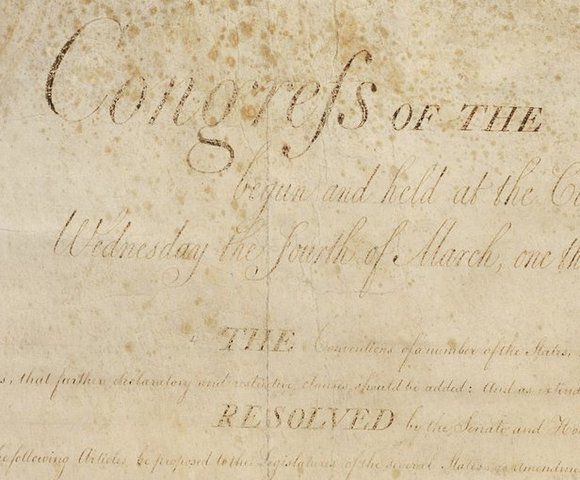 Congreſs OF THE
begun and held at the Ci
Wednesday the fourth of March, one th
THE Conventions of a number of the States,
s, that further declaratory and restrictive clauses should be added: And as exten
RESOLVED by the Senate and Ho
he following Articles be proposed to the Legislatures of the several States, as amendme